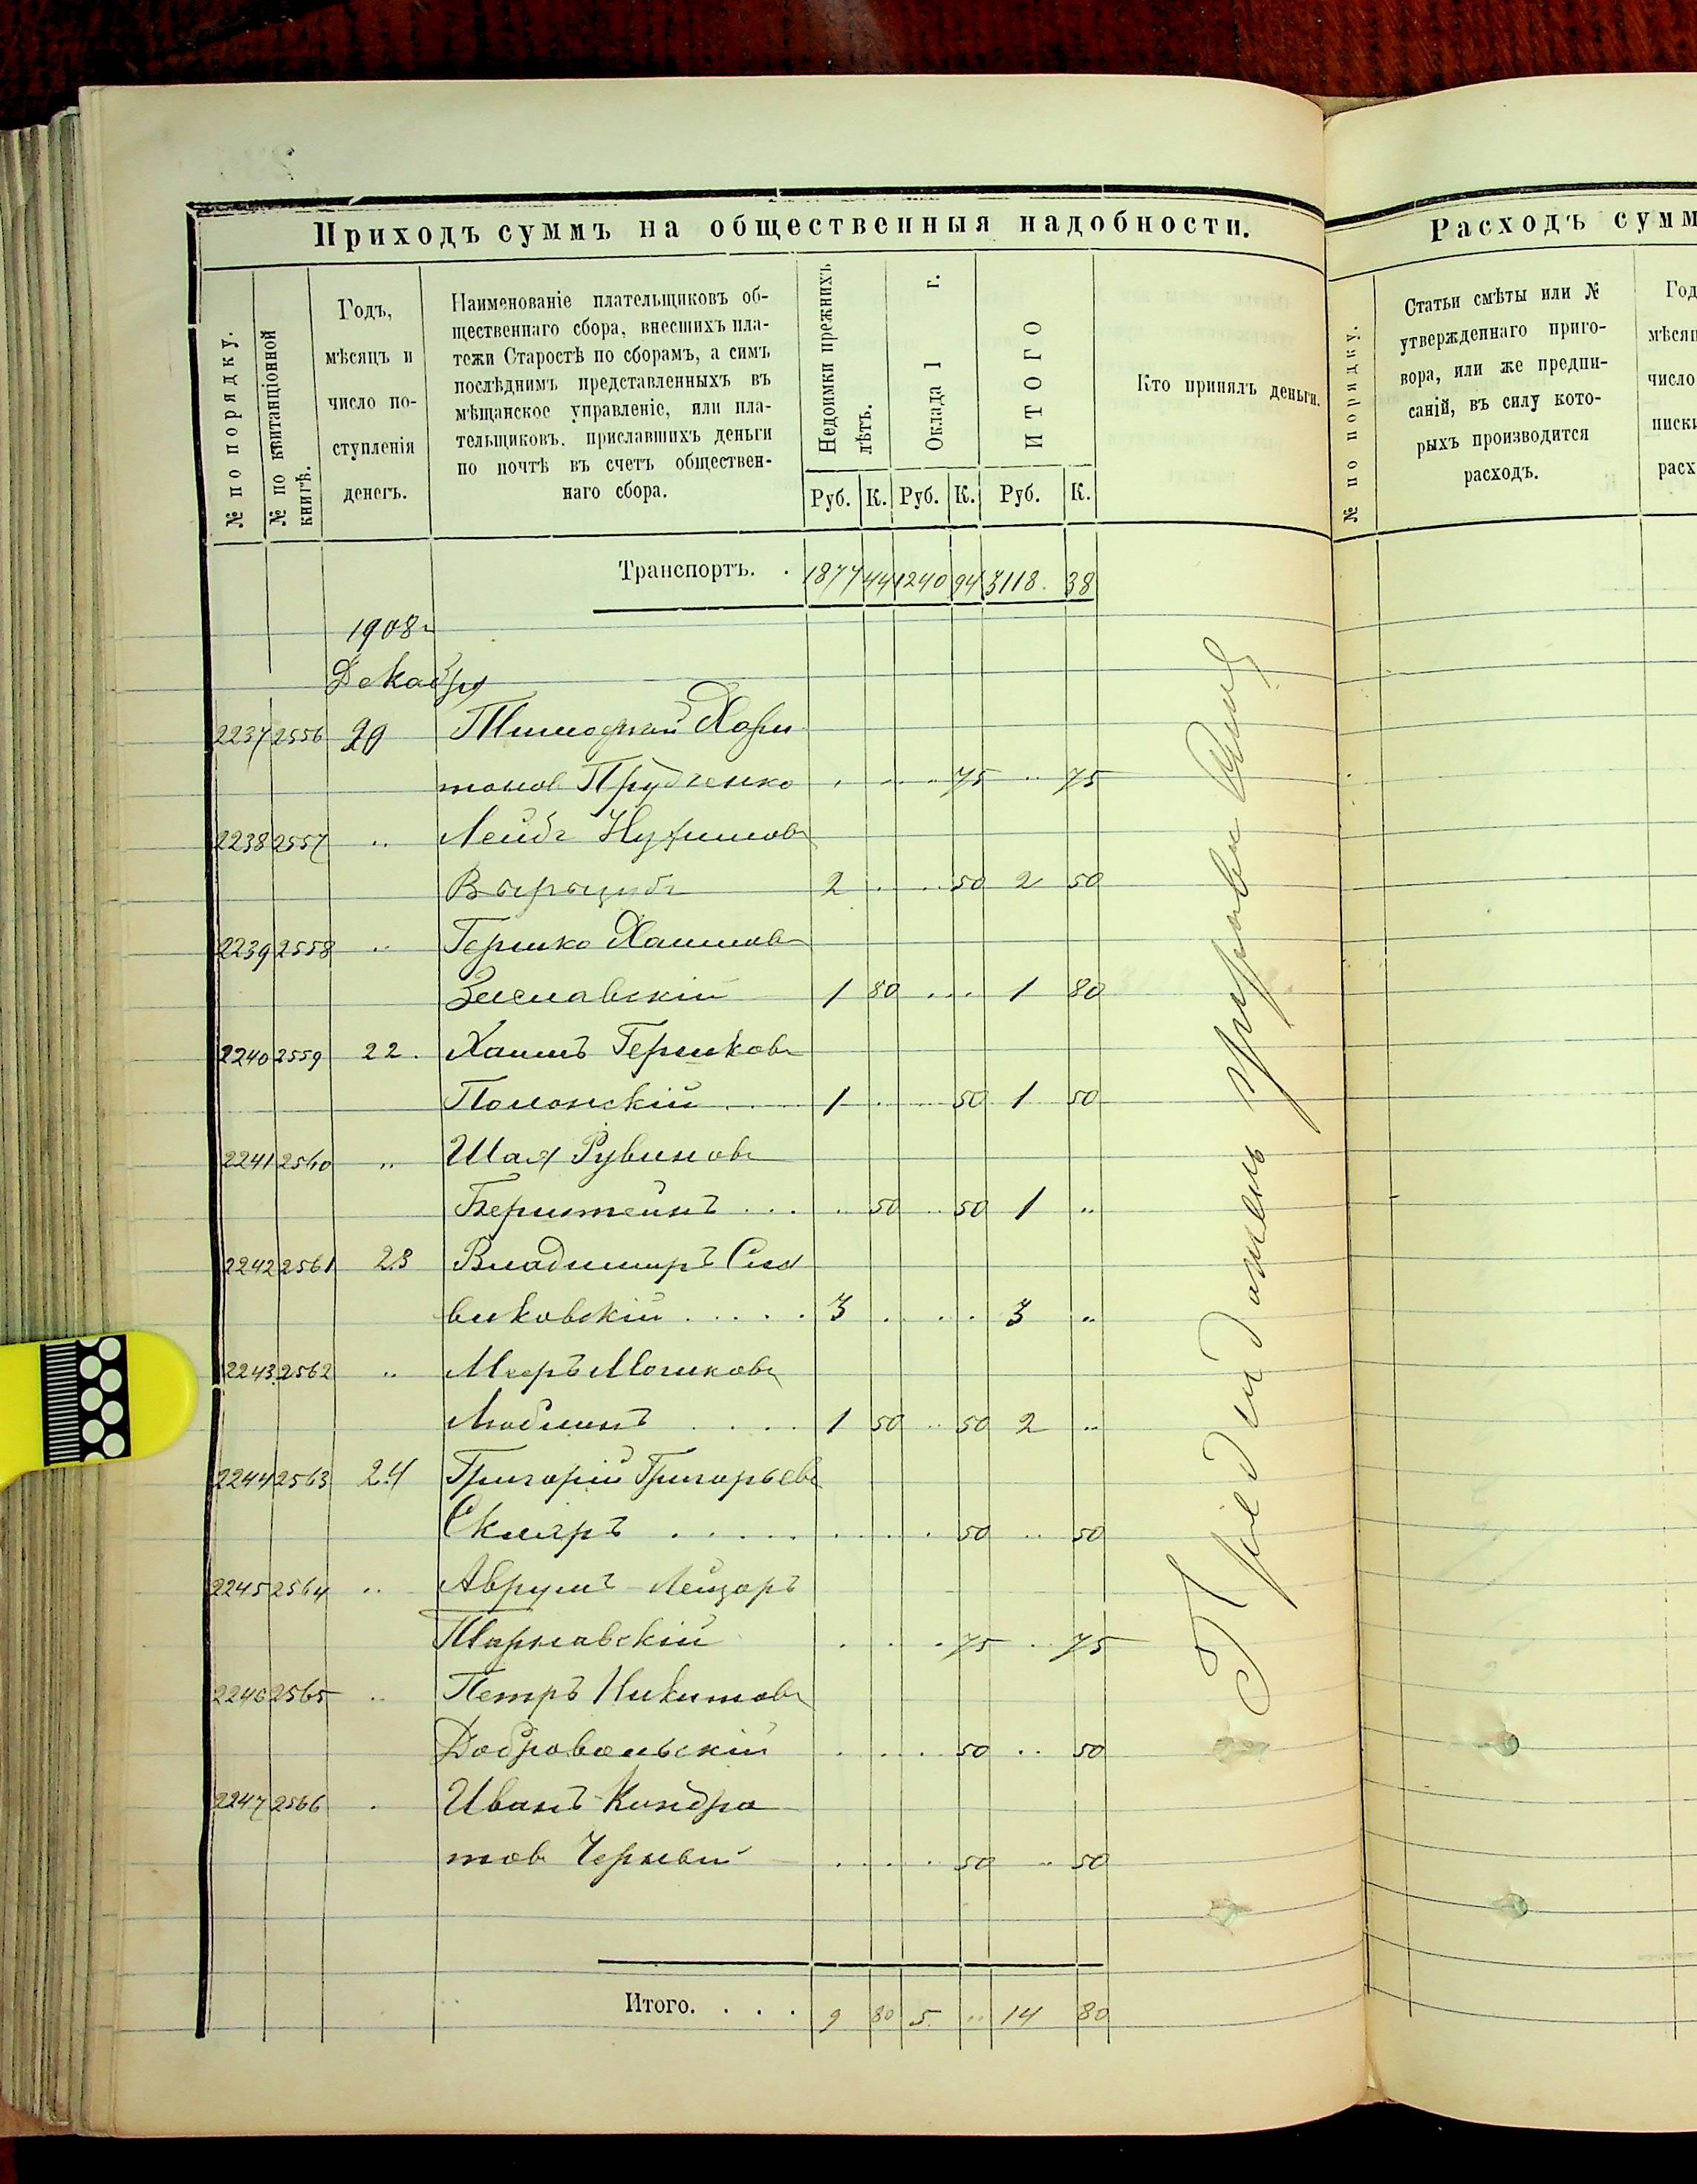 Приходъ суммъ на общественныя надобности.
№ по порядку.
№ по квитанціонной
книгѣ.
Годъ,
мѣсяцъ и
число по-
ступленія
денегъ.
Наименованіе плательщиковъ об-
щественнаго сбора, внесшихъ пла-
тежи Старостѣ по сборамъ, а симъ
послѣднимъ представленныхъ въ
мѣщанское управленіе, или пла-
тельщиковъ, приславшихъ деньги
по почтѣ въ счетъ обществен-
наго сбора.
Недоимки прежнихъ
лѣтъ.
Оклада 1 г.
ИТОГО
Кто принялъ деньги.
Руб. К. Руб. К. Руб. К.
Транспортъ. . 1877 44 1240 94 3118. 38
1908 г
Декабря
2237 2556 20 Тимофей Хари
тонов Прудченко . . . . 75 .. 75
2238 2557 .. Лейб Нухимов
2 . .. 50 2 50
2239 2558 .. Гершко Хаимов
Заславскій 1 80 ... 1 80
2240 2559 22. Хаимъ Гершков
Полонскій 1 . .. 50 1 50
2241 2560 .. Шая Рувинов
Бернштейнъ ... . 50 .. 50 1 ..
2242 2561 23 Владимиръ
виковскій ..... 3 . . . . 3 ..
2243 2562 .. Мееръ Мошков
Любманъ .... 1 50 .. 50 2 ..
2244 2563 24 Григорій Григорьев
Скляръ ..... . . . . 50 .. 50
2245 2564 .. Аврумъ-Лейзоръ
. . . . 75 .. 75
2246 2565 .. Петръ Никитов
Добровольскій . . . . 50 .. 50
2247 2566 . Иванъ Кондра
тов Черный . . . . 50 .. 50
Итого. . . . 9 80 5. .. 14 80
Расходъ сумм
№ по порядку.
Статьи смѣты или №
утвержденнаго приго-
вора, или же предпи-
саній, въ силу кото-
рыхъ производится
расходъ.
Год
мѣсяц
число
писки
расх